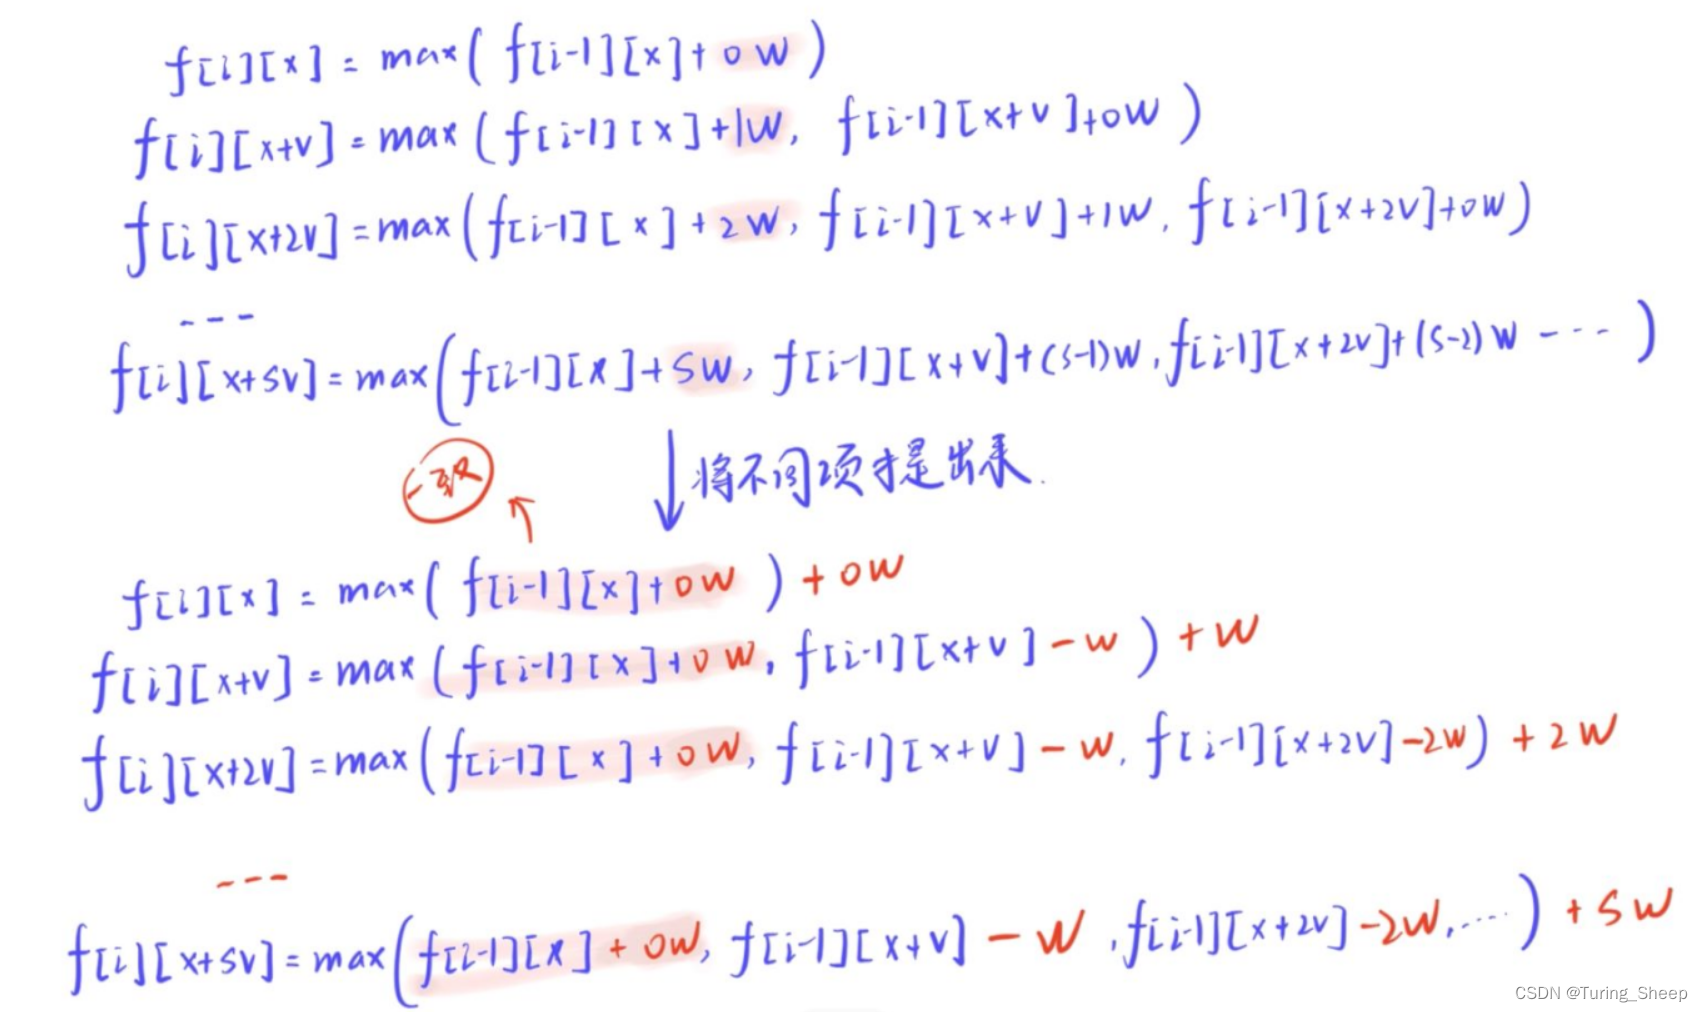 f[i][x] = max( f[i-1][x]+0w )
f[i][x+v] = max ( f[i-1][x]+1w, f[i-1][x+v]+0w )
f[i][x+2v] = max( f[i-1][x]+2w, f[i-1][x+v]+1w, f[i-1][x+2v]+0w )
---
f[i][x+sv] = max( f[i-1][x]+sw, f[i-1][x+v]+(s-1)w, f[i-1][x+2v]+(s-2)w ---- )
将不同项才是出来.
一致
f[i][x] = max( f[i-1][x]+0w ) + 0w
f[i][x+v] = max ( f[i-1][x]+0w, f[i-1][x+v]-w ) + w
f[i][x+2v] = max( f[i-1][x]+0w, f[i-1][x+v]-w, f[i-1][x+2v]-2w ) + 2w
---
f[i][x+sv] = max( f[i-1][x]+0w, f[i-1][x+v]-w, f[i-1][x+2v]-2w, ···· ) + sw
CSDN @Turing_Sheep